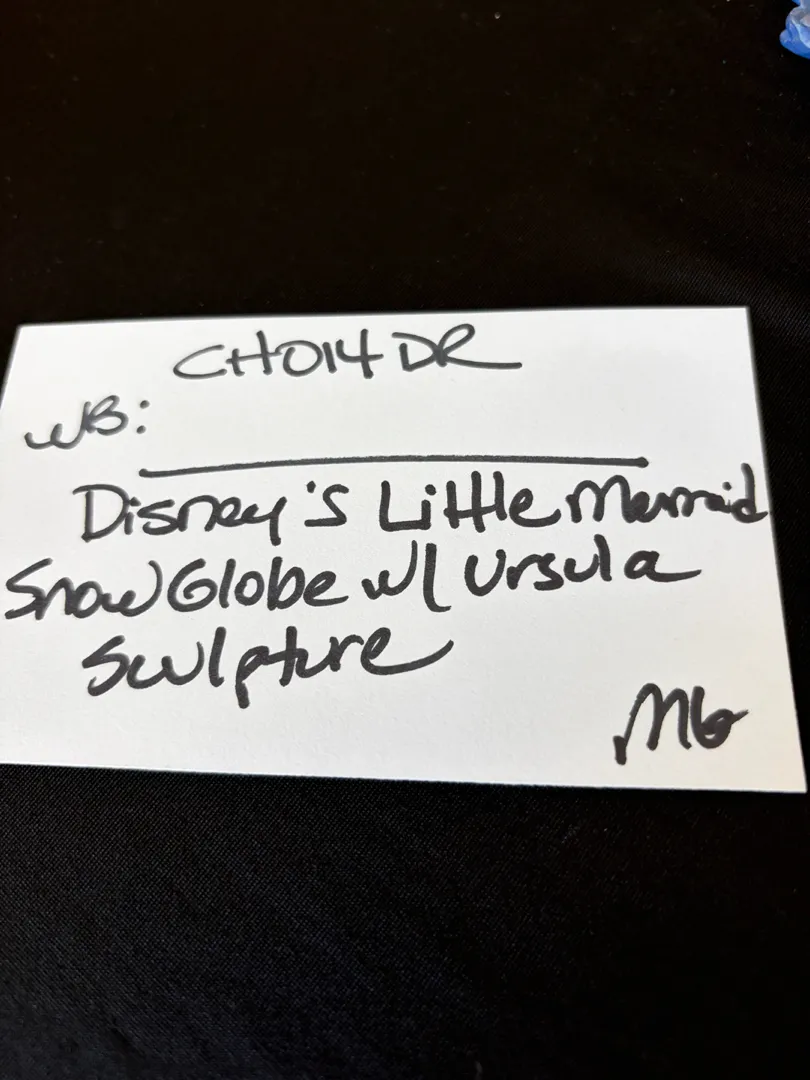 CHO14 DR
WB:
Disney's Little Mermaid
Snow Globe w/ Ursula
Sculpture
MG